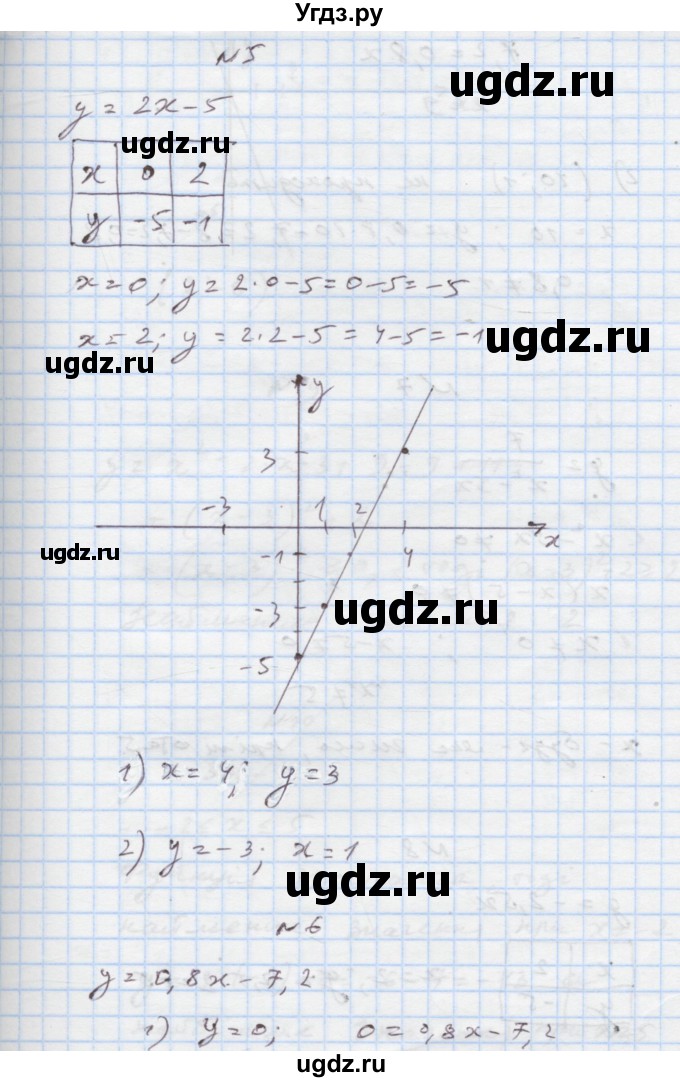 Угдз.ру
№5
ugdz.ru
y = 2x - 5
ugdz.ru
x 0 2
y -5 -1
x = 0; y = 2·0 - 5 = 0 - 5 = -5
x = 2; y = 2·2 - 5 = 4 - 5 = -1
ugdz.ru
ugdz.ru
y
3
-3 1 2
x
ugdz.ru
-1 4
-3
ugdz.ru
-5
1) x = 4; y = 3
2) y = -3; x = 1
ugdz.ru
№6
y = 0,8x - 7,2
1) y = 0; 0 = 0,8x - 7,2
ugdz.ru